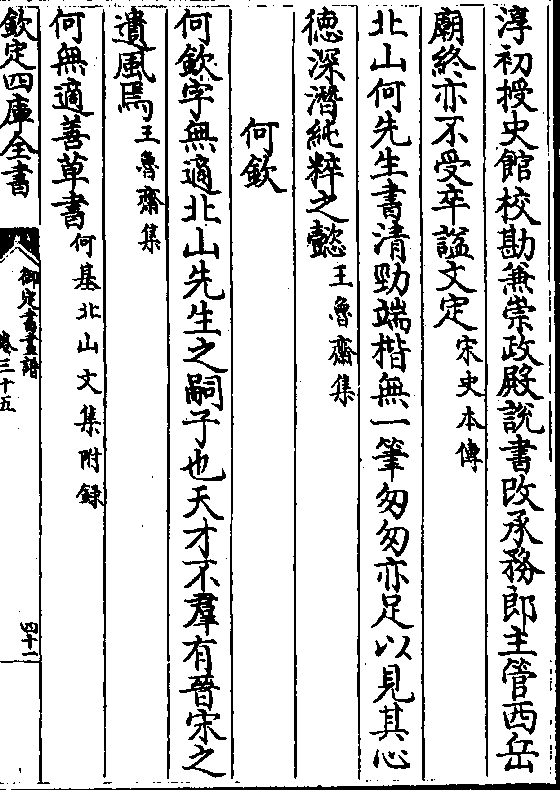 淳初授史館校勘兼崇政殿說書改承務郎主管西岳
廟終亦不受卒諡文定宋史本傳
北山何先生書清勁端楷無一筆匆匆亦足以見其心
德深潛純粹之懿王魯齋集
何欽
何欽字無適北山先生之嗣子也天才不羣有晉宋之
遺風焉王魯齋集
何無適善草書何基北山文集附録
欽定四庫全書
御定書畫譜
卷三十五
四十一